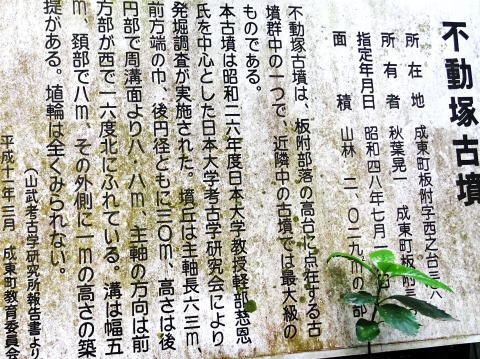 不動塚古墳
所在地 成東町板附字西之台三八
所有者 秋葉晃一 成東町板附
指定年月日 昭和四八年七月一
面積 山林 二、〇二九㎡の
不動塚古墳は、板附部落の高台に点在する古
墳群中の一つで、近隣中の古墳では最大級の
ものである。
本古墳は昭和二六年度日本大学教授軽部慈恩
氏を中心とした日本大学考古学研究会により
発掘調査が実施された。墳丘は主軸長六三m、
前方端の巾、後円径ともに三〇m、高さは後
円部で周溝面より八・八m、主軸の方向は前
方部が西で一六度北にふれている。溝は幅五
m、頚部で八m、その外側に一mの高さの築
提がある。埴輪は全くみられない。
(山武考古学研究所報告書より
平成十一年三月 成東町教育委員会